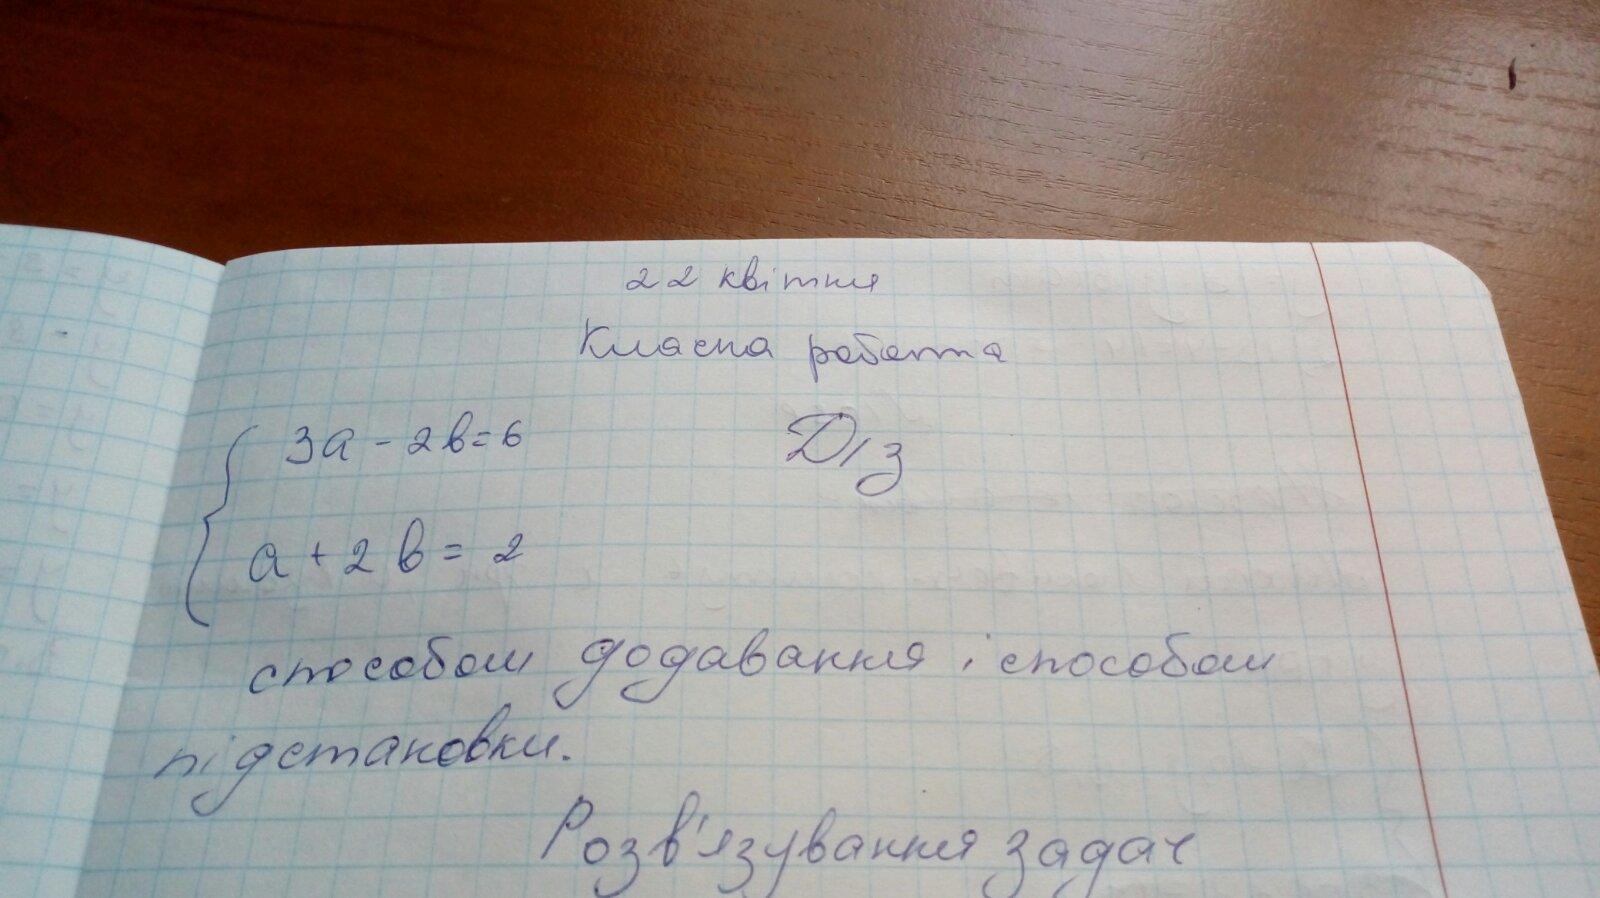 22 квітня
Класна робота
3а - 2в = 6
Д/з
а + 2в = 2
способом додавання і способом
підстановки.
Розв'язування задач